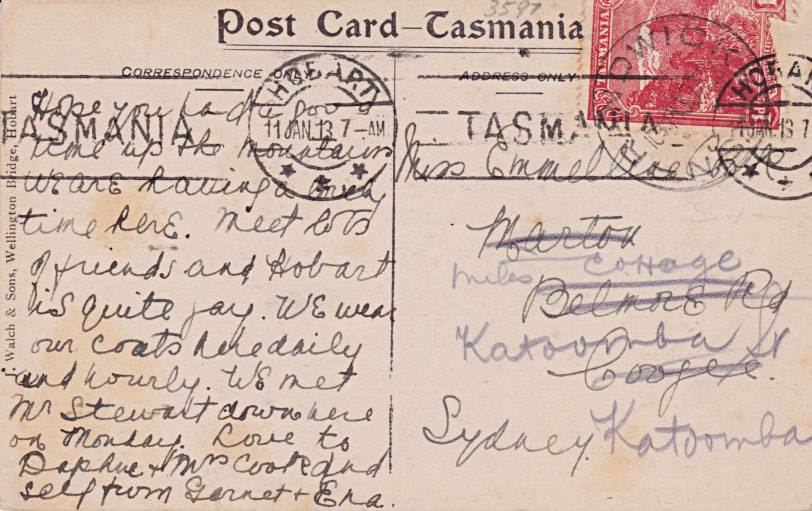 3597
Post Card - Tasmania
CORRESPONDENCE ONLY
ADDRESS ONLY
TASMANIA
HOBART
11 JAN. 13 7-AM
TASMANIA
HOBART
11 JAN. 13 7
J. Walch & Sons, Wellington Bridge, Hobart
Hope you had a good
time up the mountains
We are having a lovely
time here. Meet lots
of friends and Hobart
is quite gay. We wear
our coats here daily
and hourly. We met
Mr Stewart down here
on Monday. Love to
Daphne & Mrs Cook and
self from Garnet & Ena.
Miss Emmeline
Marton
miles Cottage
Belmore Rd
Katoomba St
Coogee.
Sydney. Katoomba